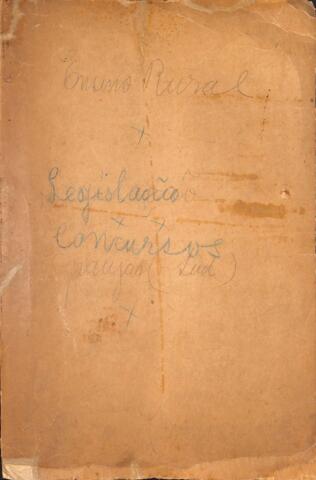 Ensino Rural
x
Legislação
x x
Concursos
x